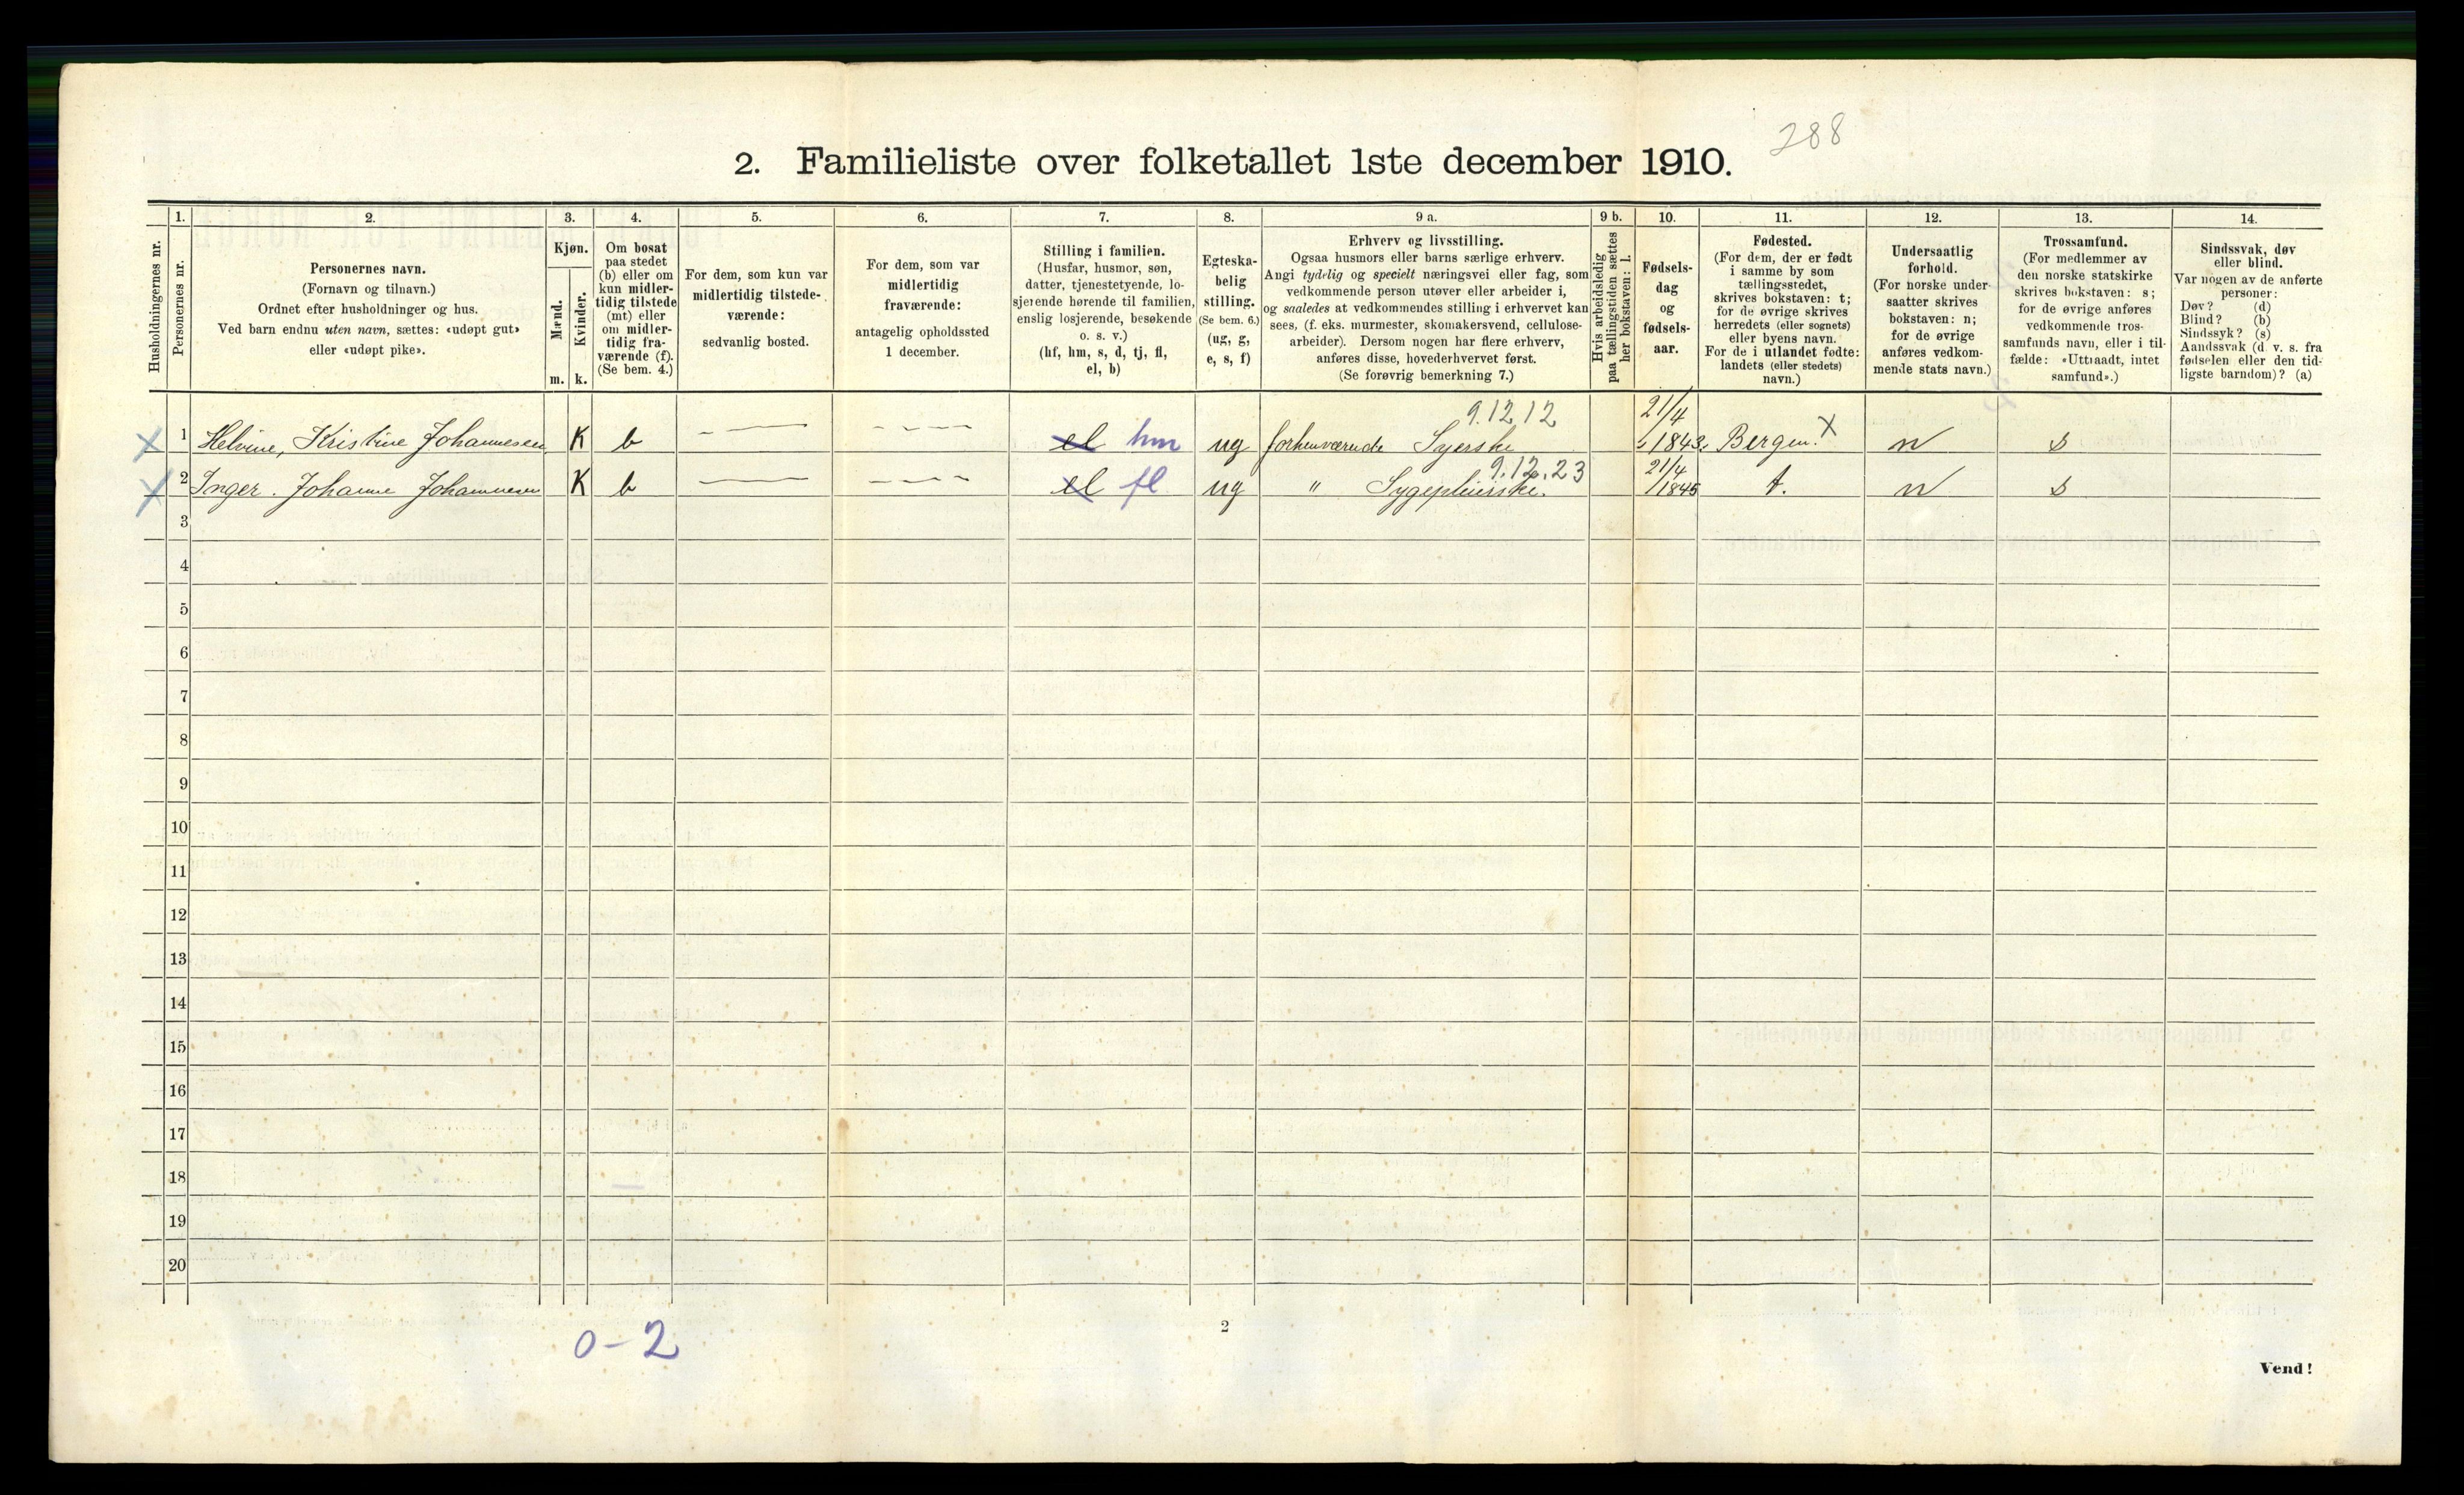 288
2. Familieliste over folketallet 1ste december 1910.
Husholdningernes nr.
1. Personernes nr.
2.
Personernes navn.
(Fornavn og tilnavn.)
Ordnet efter husholdninger og hus.
Ved barn endnu uten navn, sættes: «udøpt gut»
eller «udøpt pike».
3.
Kjøn.
Mænd. Kvinder.
m. k.
4.
Om bosat
paa stedet
(b) eller om
kun midler-
tidig tilstede
(mt) eller
om midler-
tidig fra-
værende (f).
(Se bem. 4.)
5.
For dem, som kun var
midlertidig tilstede-
værende:
sedvanlig bosted.
6.
For dem, som var
midlertidig
fraværende:
antagelig opholdssted
1 december.
7.
Stilling i familien.
(Husfar, husmor, søn,
datter, tjenestetyende, lo-
sjerende hørende til familien,
enslig losjerende, besøkende
o. s. v.)
(hf, hm, s, d, tj, fl,
el, b)
8.
Egteska-
belig
stilling.
(Se bem. 6.)
(ug, g,
e, s, f)
9 a.
Erhverv og livsstilling.
Ogsaa husmors eller barns særlige erhverv.
Angi tydelig og specielt næringsvei eller fag, som
vedkommende person utøver eller arbeider i,
og saaledes at vedkommendes stilling i erhvervet kan
sees, (f. eks. murmester, skomakersvend, cellulose-
arbeider). Dersom nogen har flere erhverv,
anføres disse, hovederhvervet først.
(Se forøvrig bemerkning 7.)
9 b.
Hvis arbeidsledig
paa tællingstiden sættes
her bokstaven: l.
10.
Fødsels-
dag
og
fødsels-
aar.
11.
Fødested.
(For dem, der er født
i samme by som
tællingsstedet,
skrives bokstaven: t;
for de øvrige skrives
herredets (eller sognets)
eller byens navn.
For de i utlandet fødte:
landets (eller stedets)
navn.)
12.
Undersaatlig
forhold.
(For norske under-
saatter skrives
bokstaven: n;
for de øvrige
anføres vedkom-
mende stats navn.)
13.
Trossamfund.
(For medlemmer av
den norske statskirke
skrives bokstaven: s;
for de øvrige anføres
vedkommende tros-
samfunds navn, eller i til-
fælde: «Uttraadt, intet
samfund».)
14.
Sindssvak, døv
eller blind.
Var nogen av de anførte
personer:
Døv? (d)
Blind? (b)
Sindssyk? (s)
Aandssvak (d. v. s. fra
fødselen eller den tid-
ligste barndom)? (a)
9.12.12 21/4
X 1 Helvine, Kristine Johannesen K b — - --- el hm ug forhenværende Syerske 1843. Bergen. X n s
9.12.23 21/4
X 2 Inger. Johanne Johannesen K b — - --- el fl ug " Sygepleierske. 1845 t. n s
3
4
5
6
7
8
9
10
11
12
13
14
15
16
17
18
19
20
0-2
2
Vend!